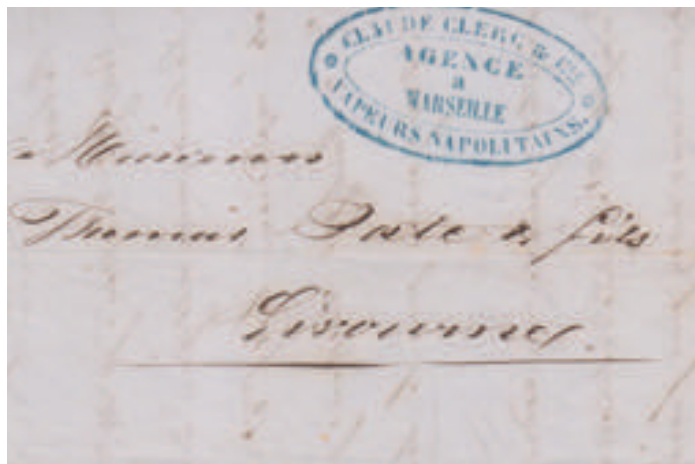 CLAUDE CLERC & CIE
AGENCE
a
MARSEILLE
VAPEURS NAPOLITAINS.
Messieurs
Thomas Pate & fils
Livourne